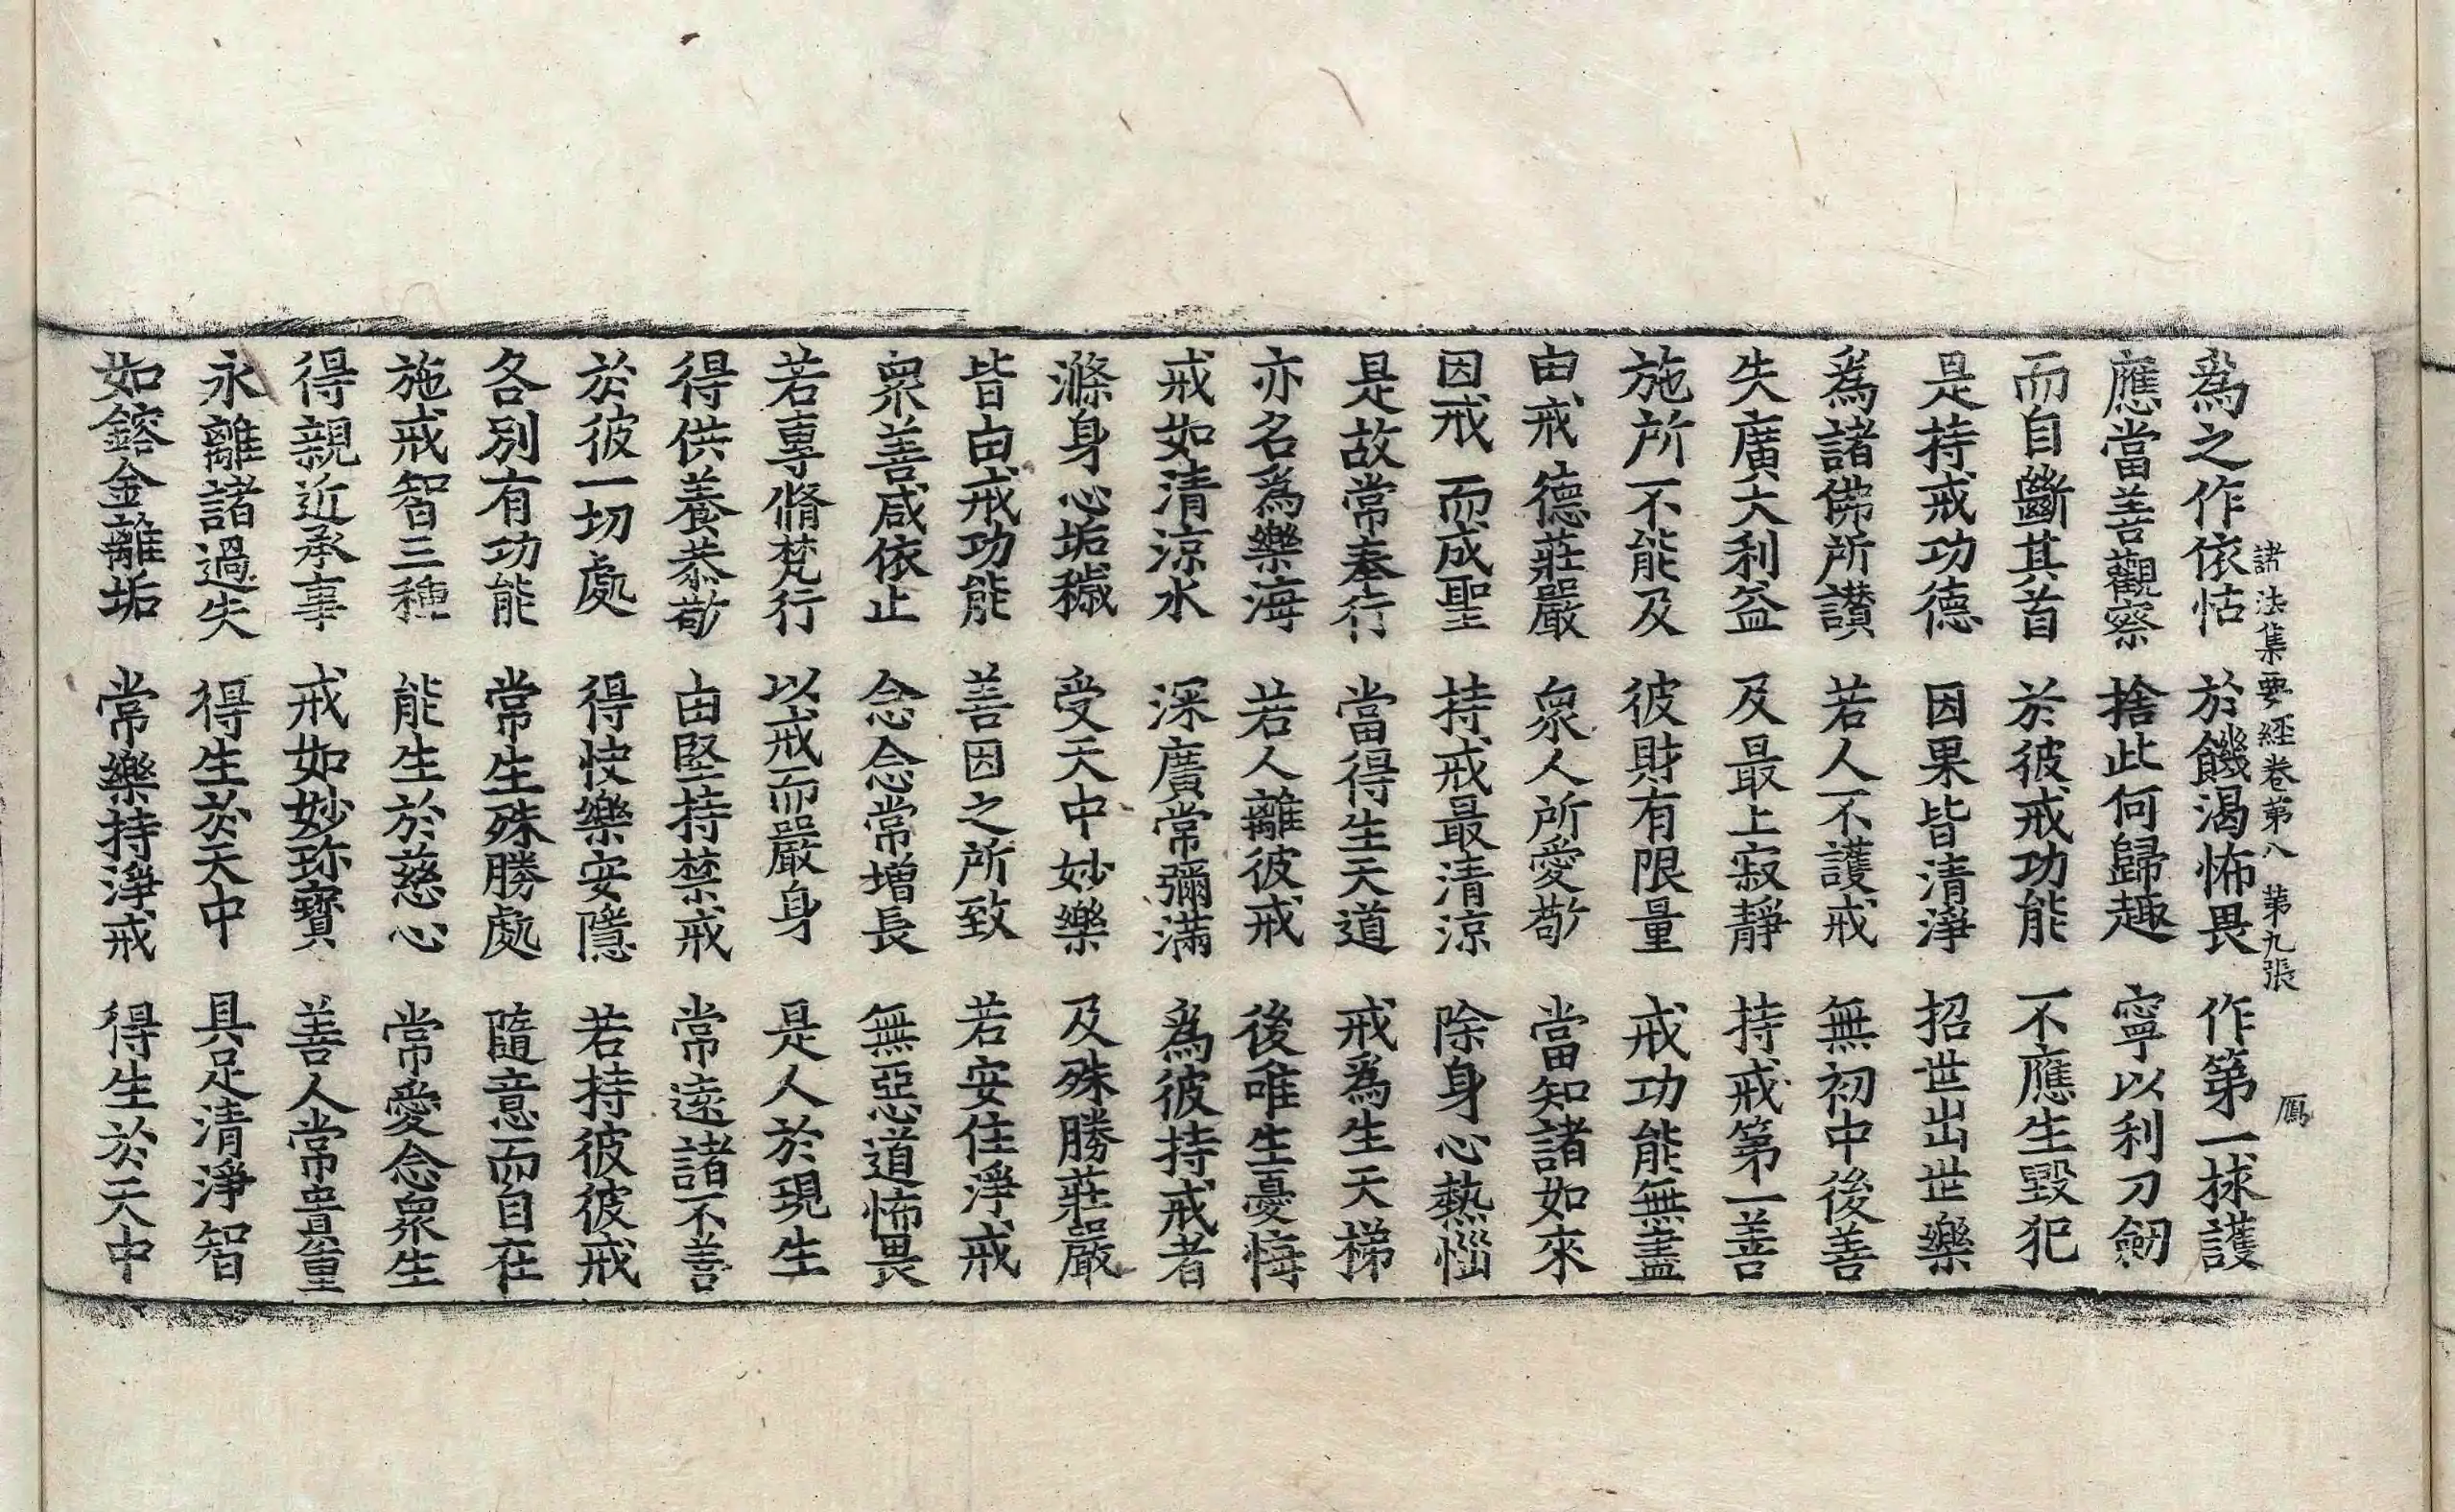 諸法集要經卷苐八　苐九張　鴈
爲之作依怙　於饑渴怖畏　作第一捄護
應當善觀察　捨此何歸趣　寧以利刀劒
而自斷其首　於彼戒功能　不應生毀犯
是持戒功德　因果皆清淨　招世出世樂
爲諸佛所讃　若人不護戒　無初中後善
失廣大利益　及最上寂靜　持戒第一善
施所不能及　彼財有限量　戒功能無盡
由戒德莊嚴　衆人所愛敬　當知諸如來
因戒而成聖　持戒最清涼　除身心熱惱
是故常奉行　當得生天道　戒爲生天梯
亦名爲樂海　若人離彼戒　後唯生憂悔
戒如清涼水　深廣常彌滿　爲彼持戒者
滌身心垢穢　受天中妙樂　及殊勝莊嚴
皆由戒功能　善因之所致　若安住淨戒
衆善咸依止　念念常增長　無惡道怖畏
若專脩梵行　以戒而嚴身　是人於現生
得供養恭敬　由堅持禁戒　常遠諸不善
於彼一切處　得快樂安隱　若持彼彼戒
各別有功能　常生殊勝處　隨意而自在
施戒智三種　能生於慈心　常愛念衆生
得親近承事　戒如妙珎寶　善人常貴重
永離諸過失　得生於天中　具足清淨智
如鎔金離垢　常樂持淨戒　得生於天中